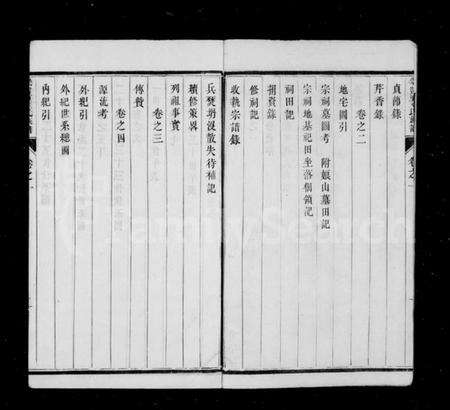 貞節錄
芹香錄
卷之二
地宅圖引
宗祠墓圖考 附娘山墓田記
宗祠地基祀田坐落個領記
祠田記
捐資錄
修祠記
收執宗譜錄
兵燹坍沒散失待補記
續修策畧
列祖事實
卷之三
傳贊
卷之四
源流考
外紀引
外紀世系總圖
內紀引
FamilySearch